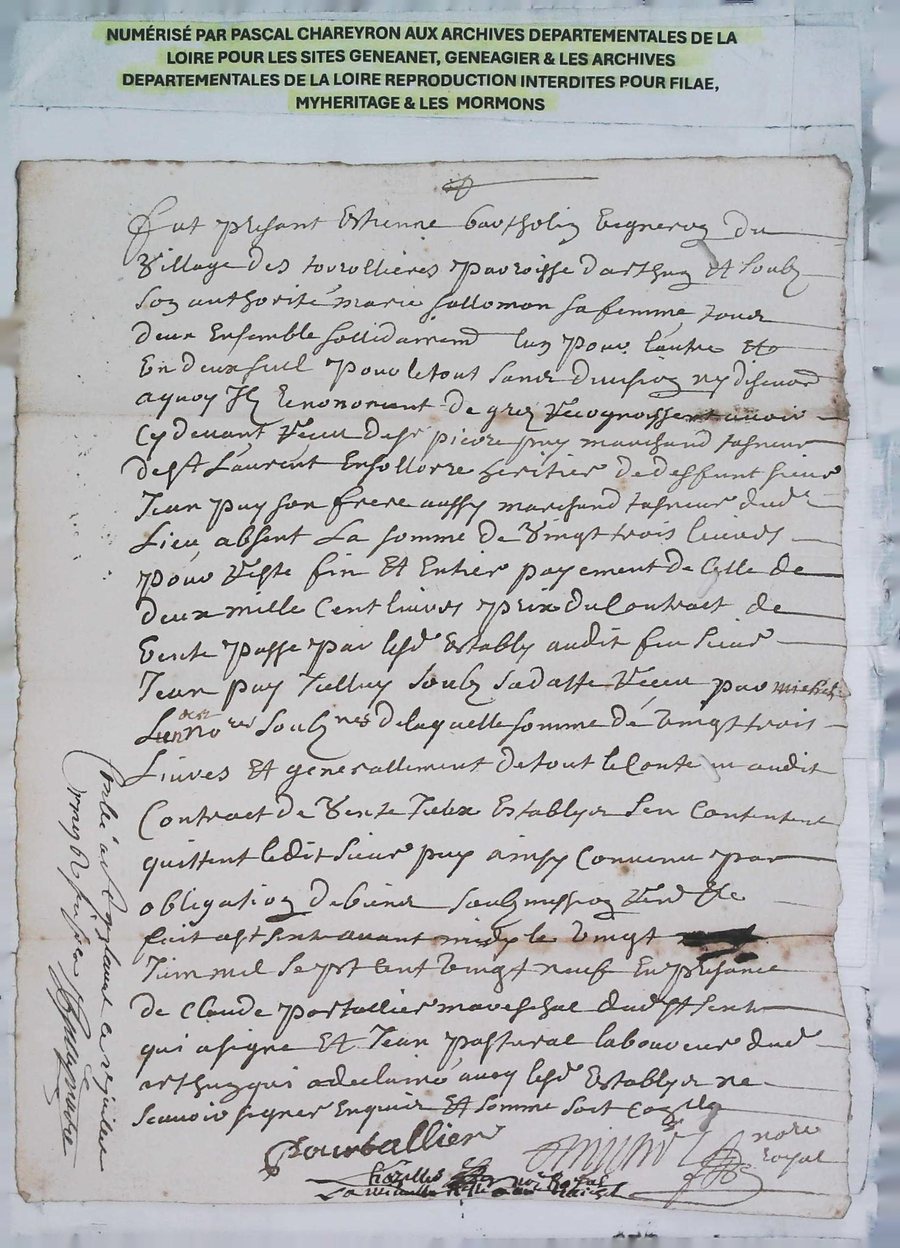 NUMÉRISÉ PAR PASCAL CHAREYRON AUX ARCHIVES DEPARTEMENTALES DE LA
LOIRE POUR LES SITES GENEANET, GENEAGIER & LES ARCHIVES
DEPARTEMENTALES DE LA LOIRE REPRODUCTION INTERDITES POUR FILAE,
MYHERITAGE & LES MORMONS
Fut presant Estienne bartholin vigneron du
Village des tovollieres parroisse darthun Et soubz
son authorité marie sallomon sa femme tous
deux Ensemble sollidairemt lun pour lautre
Un deux seul pour le tout sans division ny discution
aquoy Ilz Renoncent de grez Recognoissent avoir
Cy devant Receu de sr pierre puy marchand taneur
de st Laurent Ensollorre heritier de deffunt sieur
Jean puy son frere aussy marchand taneur dud
Lieu, absent La somme de Vingt trois livres
pour Reste fin Et Entier payement de Celle de
deux mille Cent livres prix du Contract de
Vente passe par lesd Establys audit feu sieur
Jean puy Icelluy soubz sa datte Receu par michel
nore soubzne delaquelle somme de vingt trois
Livres Et generallement de tout le Contenu audit
Contract de Vente Iceux Establys sen contentent
quittent ledit sieur puy ainsy Convenu par
obligation de biens soubzmission &c
fait a st avant midy le vingt
Juin mil sept cent vingt neuf En presance
de Claude portallier mareschal dud st
qui a signe Et Jean pastural laboureur dud
arthun qui a declairé avec lesd Establys ne
scavoir signer Enquis Et somme soit
Pourtallier
nore
royal